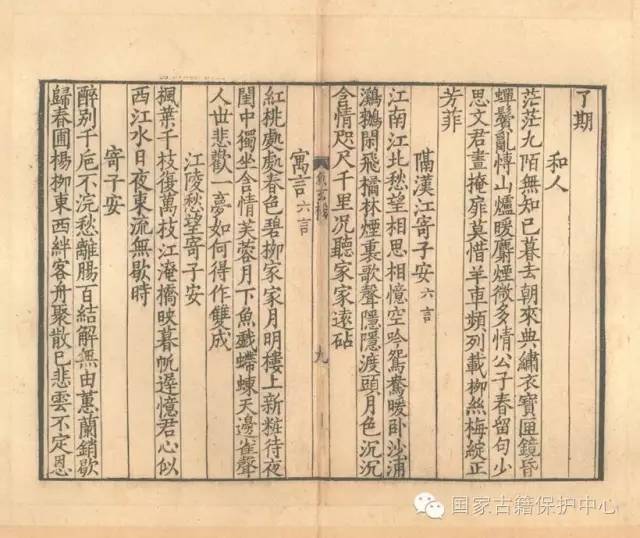 了期
和人
茫茫九陌無知已暮去朝來典繡衣寶匣鏡昏
蟬鬢亂博山爐暖麝煙微多情公子春留句少
思文君晝掩扉莫惜羊車頻列載柳絲梅綻正
芳菲
隔漢江寄子安六言
江南江北愁望相思相憶空吟鴛鴦暖卧沙浦
鸂鶒閑飛橘林煙裏歌聲隱隱渡頭月色沉沉
含情咫尺千里况聽家家遠砧
九
寓言六言
紅桃處處春色碧柳家家月明樓上新粧待夜
閨中獨坐含情芙蓉月下魚戲螮蝀天邊雀聲
人世悲歡一夢如何得作雙成
江陵愁望寄子安
楓葉千枝復萬枝江淹橋映暮帆遲憶君心似
西江水日夜東流無歇時
寄子安
醉别千巵不浣愁離腸百結解無由蕙蘭銷歇
歸春圃楊柳東西絆客舟聚散已悲雲不定恩
国家古籍保护中心